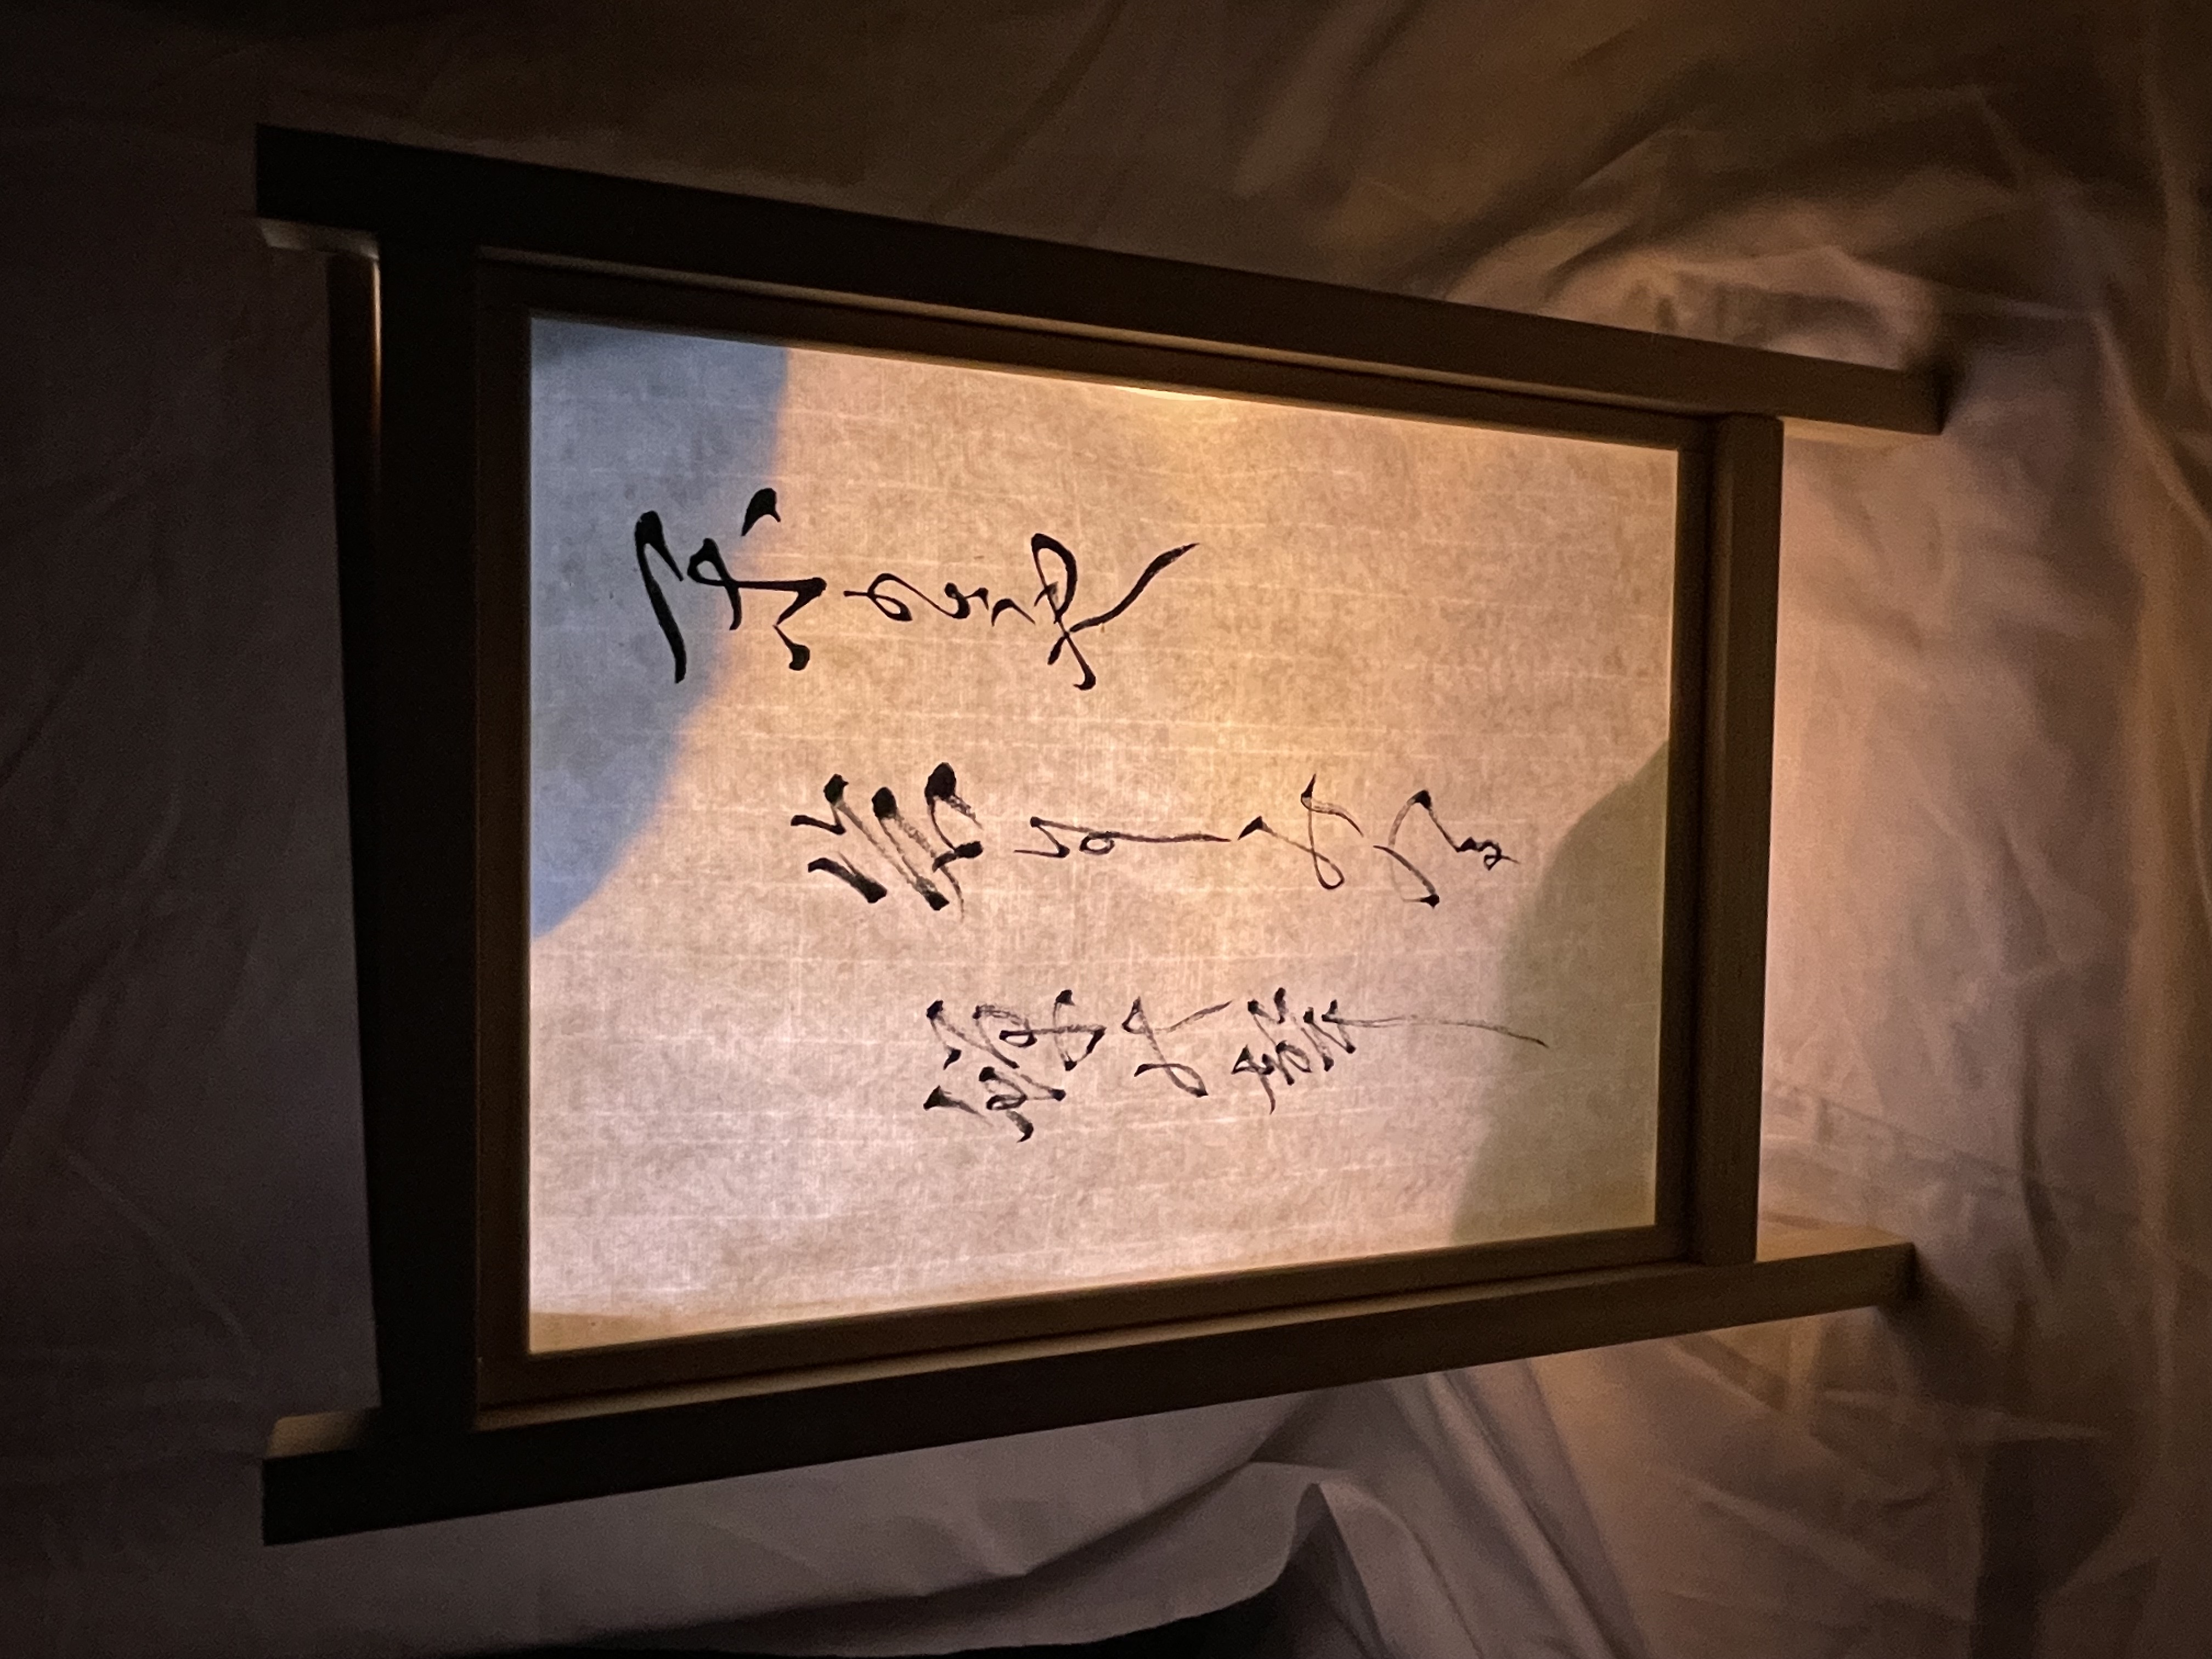 閑のさや
岩にしみ入る
蝉の聲